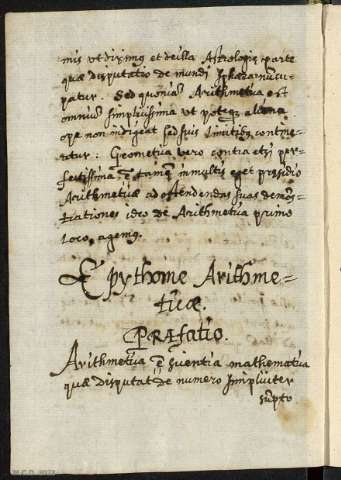 mis ut diximus et de illa Astrologiæ parte
quæ disputatio de mundi sphæra nuncu-
patur. Sed quoniã Arithmetica est
omniũ simplicissima ut potè quæ
ope non indigeat sed suis limitibus contine-
atur: Geometria vero contra etsi per-
fectissima ẽ tamen in multis eget presidio
Arithmeticæ ad ostendendas suas demõs-
trationes ideo de Arithmetica primo
loco agemus.
Epythome Arithme-
ticæ.
Præfatio.
Arithmetica ẽ scientia mathematica
quæ disputat de numero simpliciter
sũpto